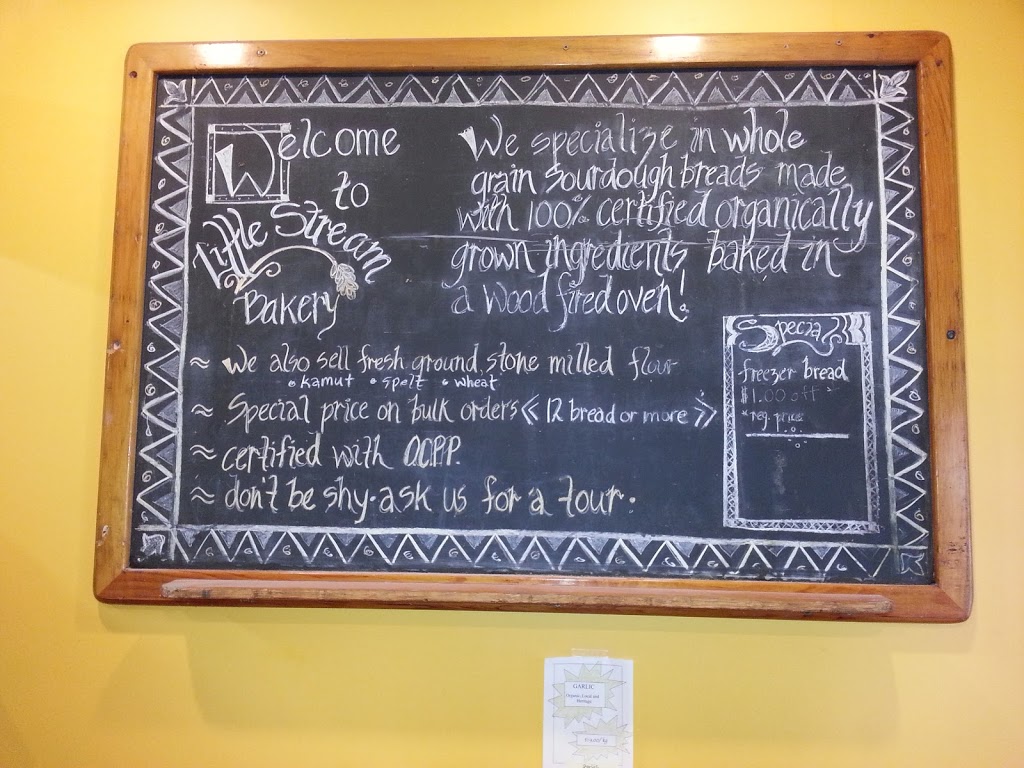 Welcome
to
Little Stream
Bakery
We specialize in whole
grain sourdough breads made
with 100% certified organically
grown ingredients baked in
a wood fired oven!
≈ We also sell fresh ground, stone milled flour
• kamut • spelt • wheat
≈ Special price on bulk orders << 12 bread or more >>
≈ certified with O.C.P.P.
≈ don't be shy·ask us for a tour.
Special
freezer bread
$1.00 off
*reg. price
GARLIC
Organic, Local and